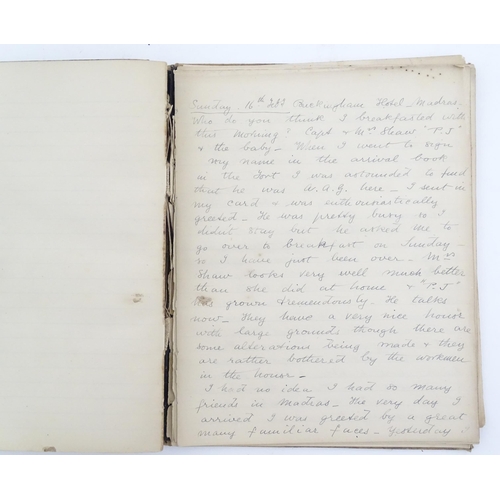 Sunday. 16th Feb Buckingham Hotel - Madras.
Who do you think I breakfasted with
this morning? Capt & Mrs Shaw "P.J"
& the baby - When I went to sign
my name in the arrival book
in the Fort I was astounded to find
that he was A.A.G. here - I sent in
my card & was enthusiastically
greeted - He was pretty busy so I
didn't stay but he asked me to
go over to breakfast on Sunday -
so I have just been over - Mrs
Shaw looks very well much better
than she did at home & "P.J"
has grown tremendously. He talks
now - They have a very nice house
with large grounds though there are
some alterations being made & they
are rather bothered by the workmen
in the house -
I had no idea I had so many
friends in Madras - The very day I
arrived I was greeted by a great
many familiar faces - Yesterday I